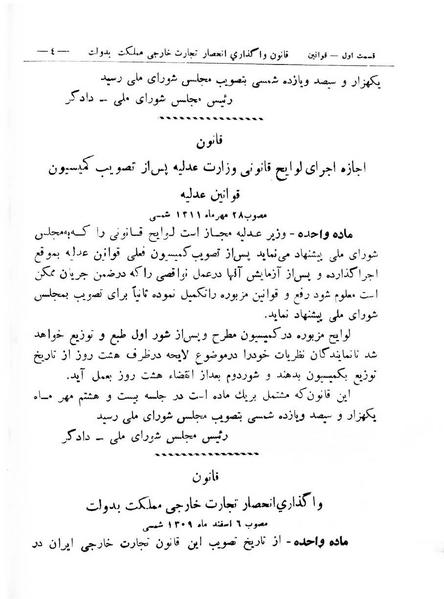 قسمت اول — قوانین قانون واگذاری انحصار تجارت خارجی مملکت بدولت —٤—
یکهزار و سیصد ویازده شمسی بتصویب مجلس شورای ملی رسید
رئیس مجلس شورای ملی ـ دادگر
قانون
اجازه اجرای لوایح قانونی وزارت عدلیه پس‌از تصویب کمیسیون
قوانین عدلیه
مصوب ۲۸ مهرماه ۱۳۱۱ شمسی
ماده واحده - وزیر عدلیه مجاز است لوایح قانونی را که بمجلس
شورای ملی پیشنهاد می‌نماید پس‌از تصویب کمیسیون فعلی قوانین عدلیه بموقع
اجراگذارده و پس‌از آزمایش آنها درعمل نواقصی راکه درضمن جریان ممکن
است معلوم شود رفع و قوانین مزبوره راتکمیل نموده ثانیاً برای تصویب بمجلس
شورای ملی پیشنهاد نماید.
لوایح مزبوره درکمیسیون مطرح وپس‌از شور اول طبع و توزیع خواهد
شد تانمایندگان نظریات خودرا درموضوع لایحه درظرف هشت روز از تاریخ
توزیع بکمیسیون بدهند و شوردوم بعداز انقضاء هشت روز بعمل آید.
این قانون‌که مشتمل بریك ماده است در جلسه بیست و هشتم مهر مـاه
یکهزار و سیصد ویازده شمسی بتصویب مجلس شورای ملی رسید
رئیس مجلس شورای ملی ـ دادگر
قانون
واگذاری انحصار تجارت خارجی مملکت بدولت
مصوب ٦ اسفند ماه ۱۳۰۹ شمسی
ماده واحده - از تاریخ تصویب این قانون تجارت خارجی ایران در